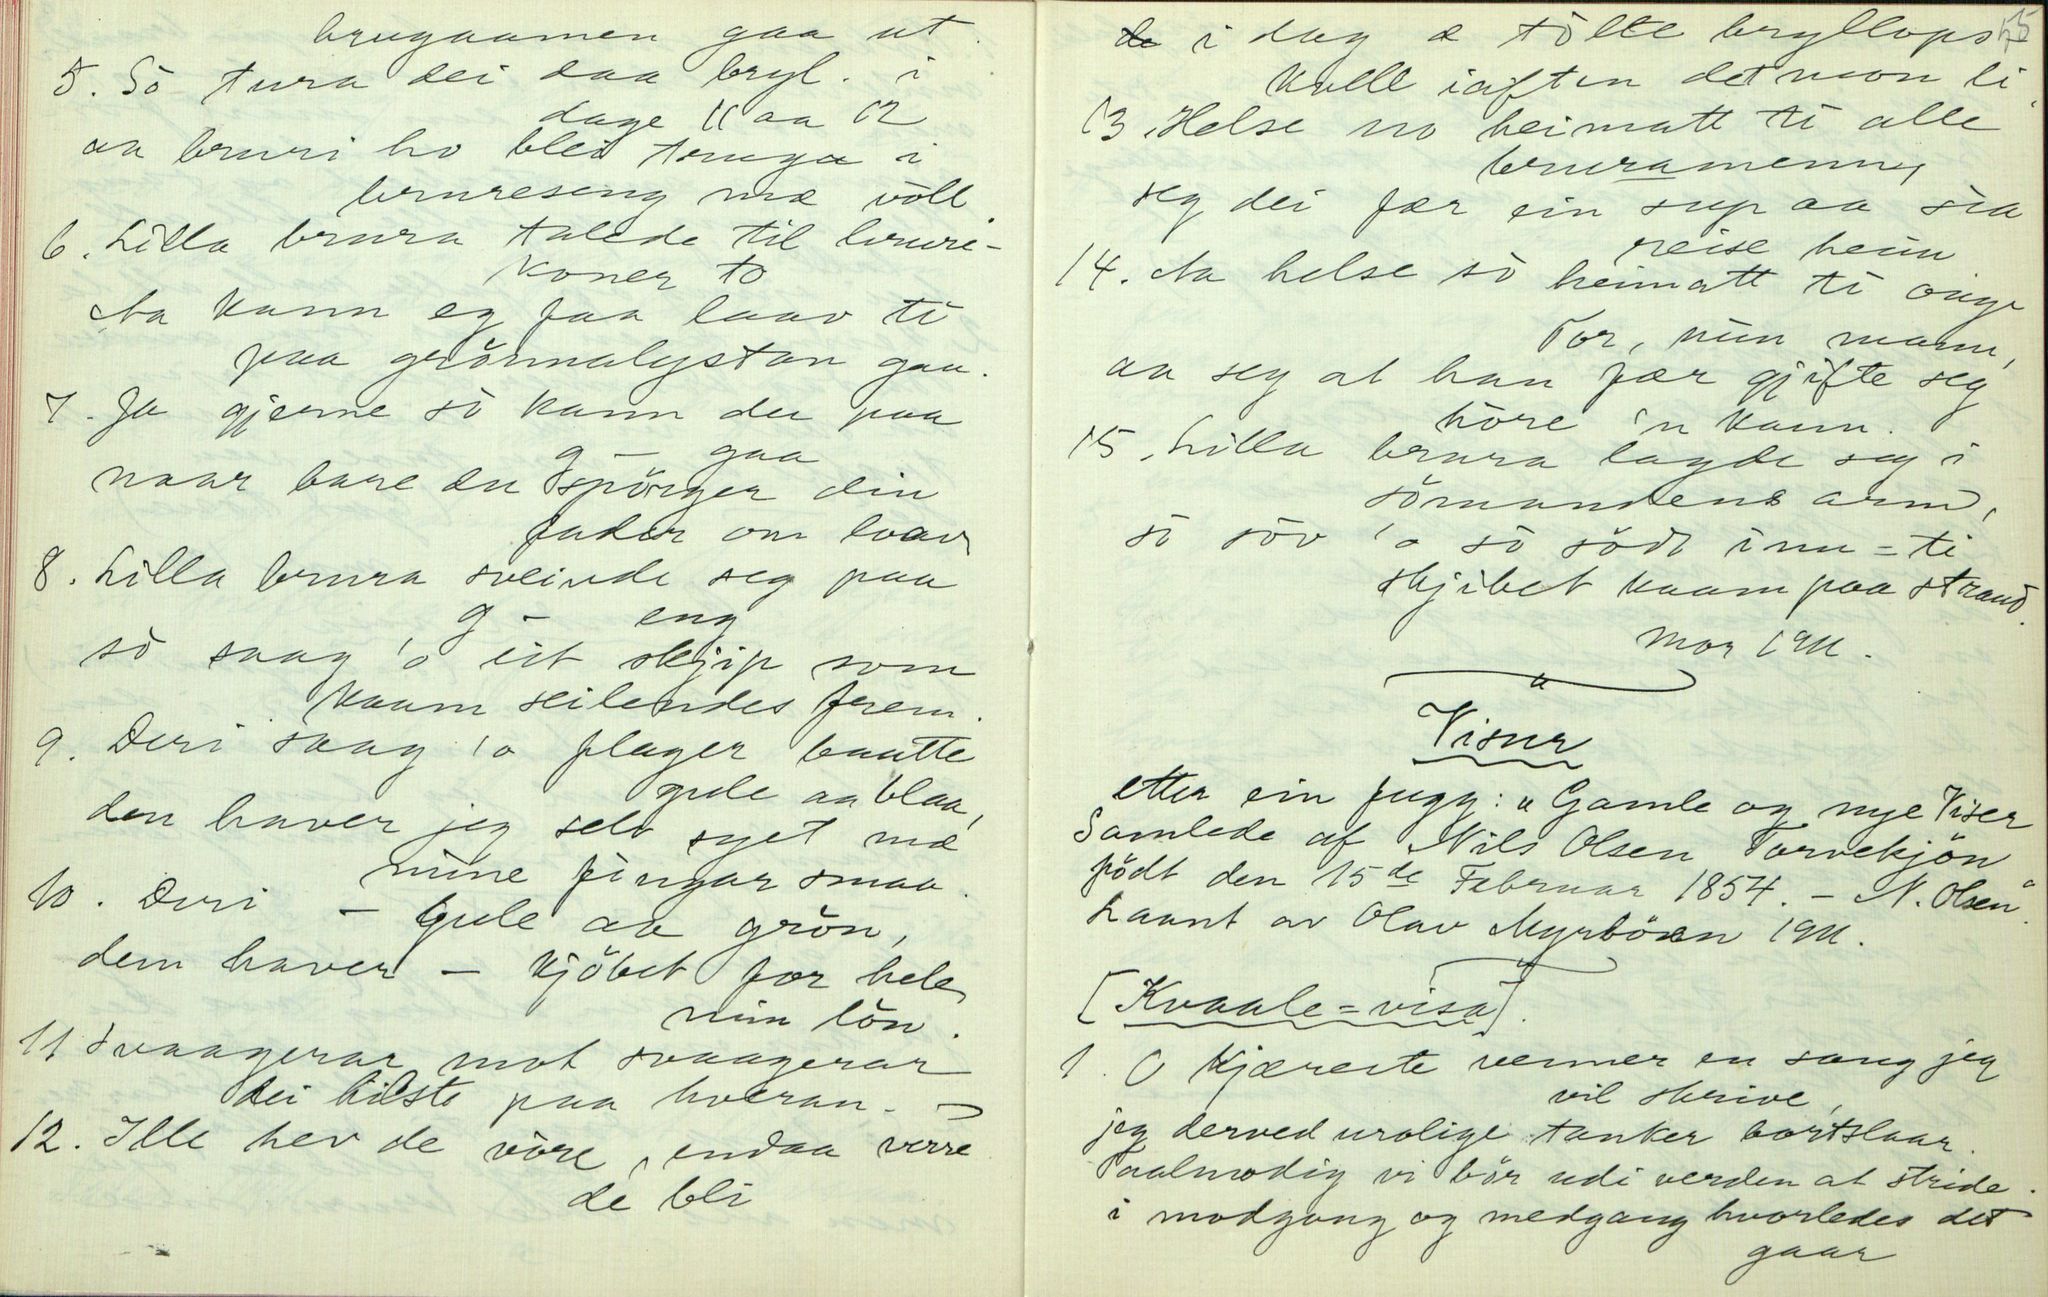 brugaamen gaa ut.
5. Sò tura dei daa bryl. i
dage 11 aa 12
aa bruri ho blei tvuga i
brureseng mæ vòll.
6. Lilla brura talede til bruri-
koner to
Aa kann eg faa laav ti
paa grönnalystan gaa.
7. Ja gjerne sò kann du paa
g – gaa
naar bare du spörger din
fader om lova
8. Lilla brura sveivde seg paa
g – eng
sò saag 'o eit skjip som
kaam seilendes frem.
9. Deri saag 'o flager baatte
gule aa blaa,
den haver jeg selv syet mæ
mine fingar smaa.
10. Deri – gule aa grön,
dem haver – kjöbet for hele
min lön.
11 Svaagerar mot svaagerar
dei hilste paa hveran. –
12. Ille hev de vòre, endaa verre
de bli
55
i dag æ tòlte bryllops
kvell iaften det mon bli.
13. Helse no heimatt ti alle
bruramenn,
seg dei fær ein sup aa sia
reise heim
14. Aa helse sò heimatt ti onge
Tor, min mann,
aa seg at han fær gjifte seg
hòre 'n kann.
15. Lilla brura lagde seg i
sòmandens arm,
sò sòv 'o sò södt innu = ti
skjibet kaam paa strand.
Mor 1911.
Visur
etter ein fugg: "Gamle og nye Viser
Samlede af Nils Olsen Torvekjön
födt den 15de Februar 1854. – N. Olsen".
Laant av Olav Myrböen 1911.
[Kvaale = visa].
1. O Kjæreste venner en sang jeg
vil skrive,
jeg derved urolige tanker bortslaar.
Taalmodig vi bör udi verden at stride.
i modgang og medgang hvorledes det
gaar